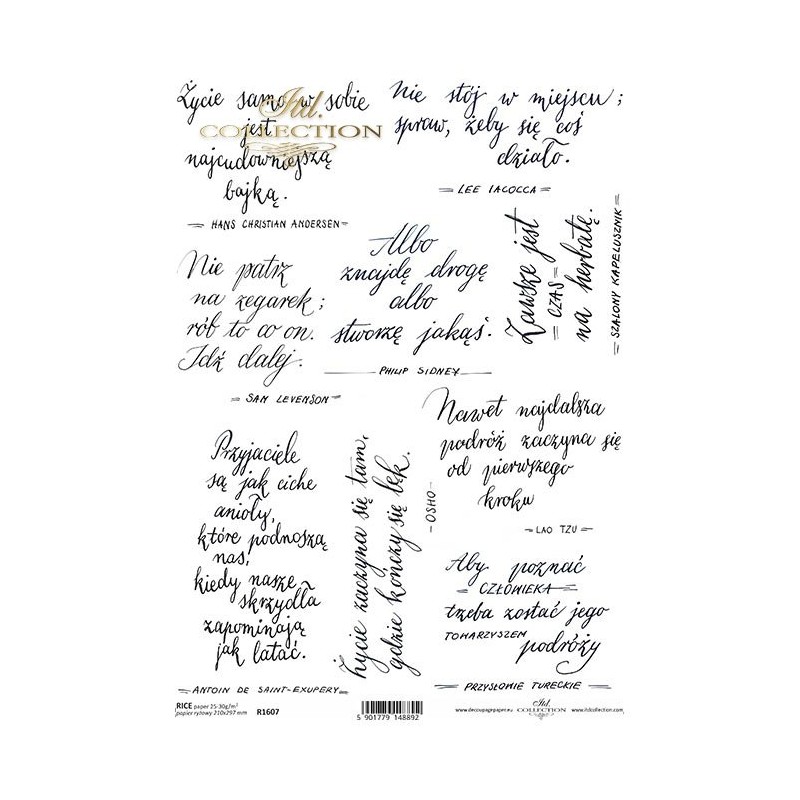 Życie samo w sobie
jest
najcudowniejszą
bajką.
HANS CHRISTIAN ANDERSEN
Itd.
COLLECTION
Nie stój w miejscu;
spraw, żeby się coś
działo.
LEE IACOCCA
Nie patrz
na zegarek;
rób to co on.
Idź dalej.
SAM LEVENSON
Albo
znajdę drogę
albo
stworzę jakąś.
PHILIP SIDNEY
Zawsze jest
CZAS
na herbatę.
SZALONY KAPELUSZNIK
Przyjaciele
są jak ciche
anioły,
które podnoszą
nas,
kiedy nasze
skrzydła
zapominają
jak latać.
ANTOIN DE SAINT-EXUPERY
Życie zaczyna się tam,
gdzie kończy się lęk.
OSHO
Nawet najdalsza
podróż zaczyna się
od pierwszego
kroku
LAO TZU
Aby poznać
CZŁOWIEKA
trzeba zostać jego
TOWARZYSZEM
podróży
PRZYSŁOWIE TURECKIE
RICE paper 25-30g/m²
papier ryżowy 210x297 mm R1607
5 901779 148892
www.decoupagepaper.eu
Itd.
COLLECTION
www.itdcollection.com